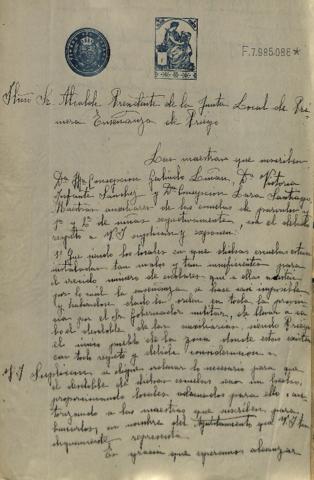 F.7.985.086*
Iltmo Sr. Alcalde Presidente de la Junta Local de Pri-
mera Enseñanza de Priego
Las maestras que suscriben
Dª Mª Concepcion Lucán, Dª Victoria
Infante Sánchez y Dª Concepcion Lara Santiago,
Maestras auxiliares de las escuelas de parvulos y
1ª y 2ª de niñas respectivamente, con el debido
respeto a V.I. suplican y exponen:
1º Que siendo los locales en que dichas escuelas estan
instaladas tan malos y tan insuficientes para
el crecido número de que a ellas asisten
por lo cual la enseñanza se hace casi imposible
y habiendose dado la orden en toda la provin-
cia por el Sr. Gobernador militar, de llevar a ca-
bo el desdoble de las auxiliarias siendo Priego
el único pueblo de la zona donde estas existen
con todo respeto y debida consideracion a
V.I. Suplican: se digne ordenar lo necesario para que
el desdoble de dichas escuelas sea un hecho,
proporcionando locales adecuados para ello, au-
torizando a las maestras que suscriben para
buscarlos, en nombre del Ayuntamiento que V.I. tan
dignamente representa.
Es gracia que esperamos alcanzar